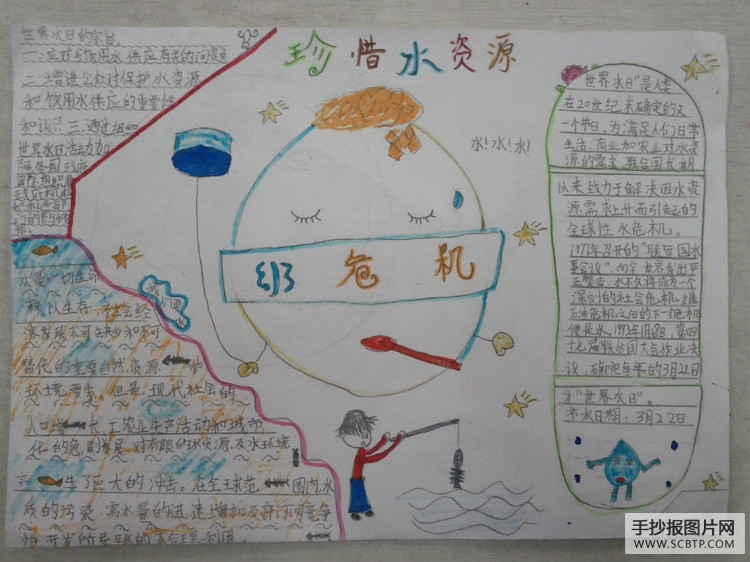 珍惜水资源
世界水日的宗旨
一:应对与饮用水供应有关的问题
二:增进公众对保护水资源
和饮用水供应的重要性
和认识三、通过组织
世界水日活动加
水是一切生命
赖以生存,社会经
济发展不可缺少和不可
替代的重要自然资源
环境要素。但是,现代社会的
人口 长、工农业生产活动和城市
化的急剧发展,对有限的水资源及水环境
生了巨大的冲击。在全球范 国内,水
质的污染,需水量的迅速增加及部门间竞争
性开发所导致的不合理利用
我们要
水!水!水!
危机
世界水日"是人类
在20世纪末确定的又
一个节日。为满足人们日常
生活、商业和农业对水资
源的需求,联合国长期
以来致力于解决因水资
源需求上升而引起的
全球性水危机。
1977年召开的"联合国水
事会议",向全世界发出严
正警告:水不久将成为一个
深刻的社会危机,继
石油危机之后的下一危机
便是水。1993年1月8日,第四
十七届联合国大会作出决
议,确定每年的3月22日
为"世界水日"。
节水日期:3月22日
手抄报图片网
WWW.SCBTP.COM